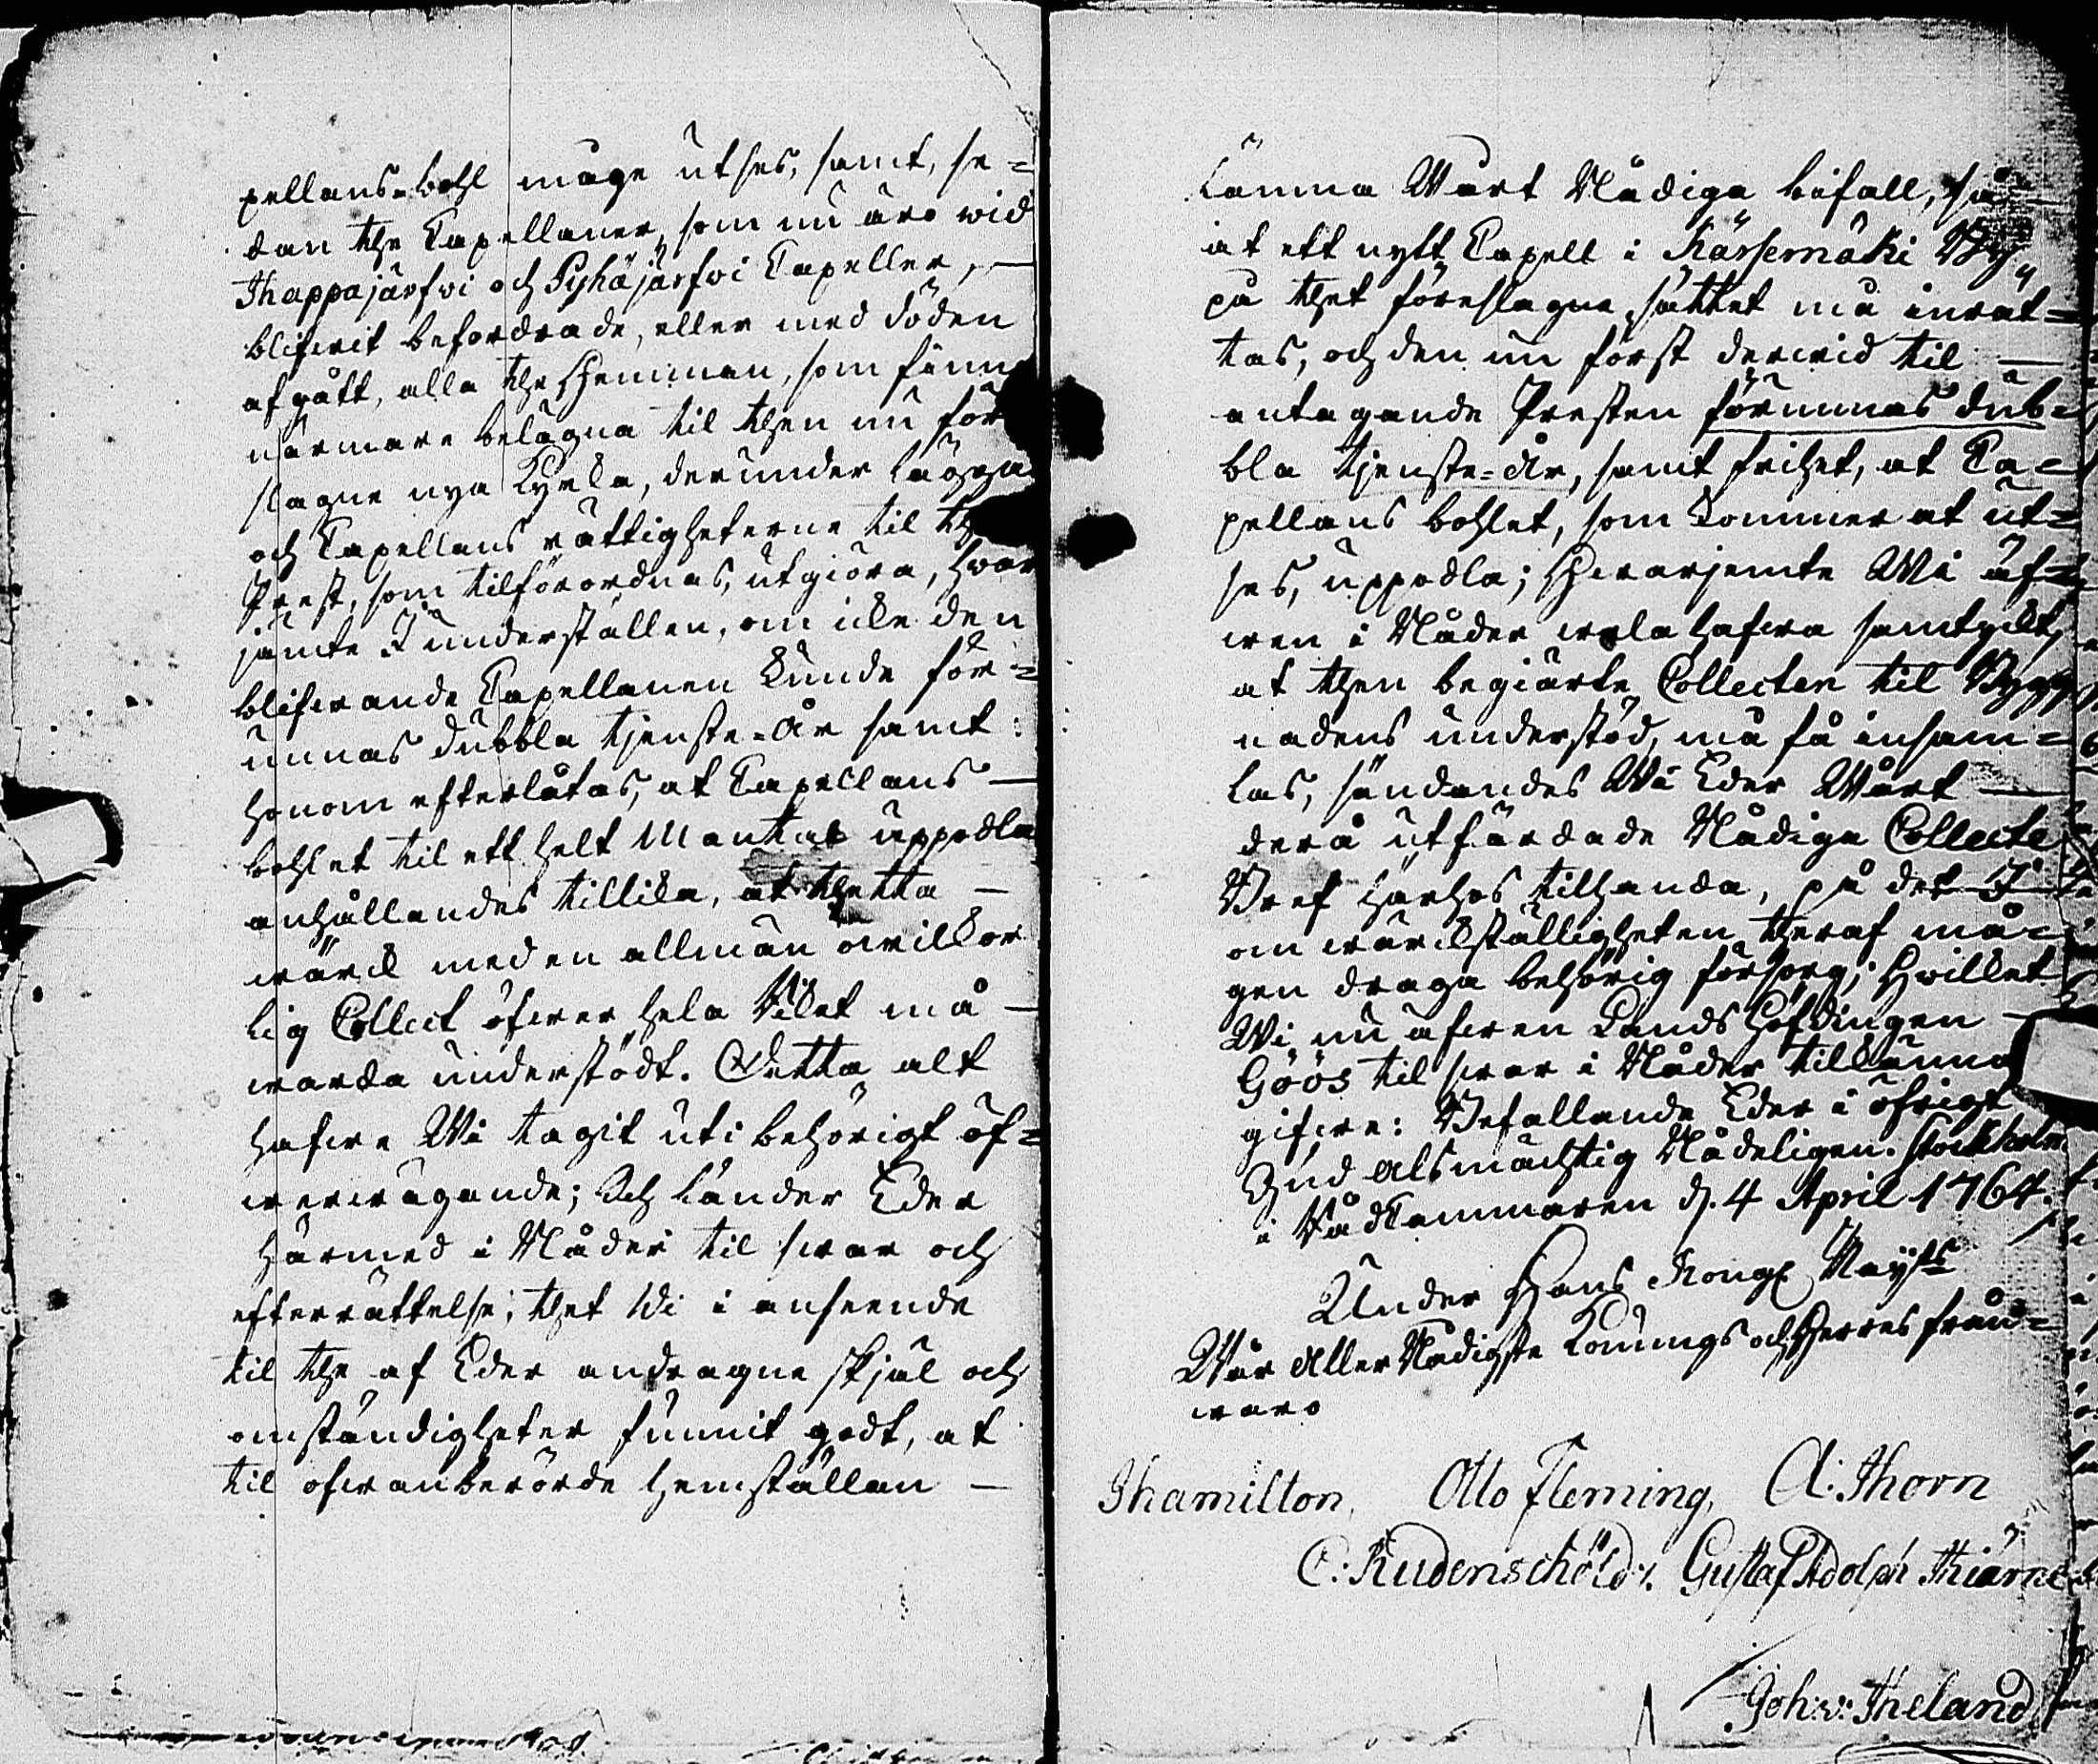 pellans-bohl måge utses, samt, se=
dan the Capellaner, som nu äro wid
Ihappajärfwi och Pyhäjärfwi Capeller, —
blifwit befordrade, eller med döden
afgått, alla the Hemman, som finna
närmare belägna til then nu före
slagne nya Kyrka, derunder lägga
och Capellans rättigheterne til th
Prest, som tilförordnas, utgiöra, hwar
jämte I underställen, om icke den
blifwande Capellanen kunde för=
unnas dubbla tjenste-år samt
honom efterlåtas, at Capellans —
bohlet til ett helt Mantal uppodla
anhållandes tillika, at thetta —
wärck med en allmän owilkor
lig Collect öfwer hela Riket må —
warda understödt. Detta alt
hafwe Wi tagit uti behörigt öf=
werwägande; Och länder Eder
härmed i Nåder til swar och
efterrättelse, thet Wi i anseende
til the af Eder andragne skjäl och
omständigheter funnit godt, at
til ofwanberörde hemställan —
lämna Wårt Nådiga bifall, så
at ett nytt Capell i Kärsemäki By
på thet föreslagne sättet må inrät=
tas, och den nu först derwid til —
antagande Presten förunnas dub=
bla tjenste-år, samt frihet, at Ca=
pellans bohlet, som kommer at ut=
ses, uppodla; Hwarjemte Wi äf=
wen i Nåder wela hafwa samtyckt,
at then begiärte Collecten til Bygg
nadens understöd, må få insam=
las, sändandes Wi Eder Wårt —
derå utfärdade Nådiga Collecte
Bref härhos tillhanda, på det I
om wärckställigheten theraf må=
gen draga behörig försorg; Hwilket
Wi nu äfwen Lands Höfdingen —
Göös til swar i Nåder tillkänna
gifwe: Befallande Eder i öfrigt
Gud Alsmächtig Nådeligen. Stockholm
i RådKammaren d. 4 April 1764.
Under Hans Kongl Maijts
Wår Aller Nådigste Konungs och Herres frånn=
waro
Ihamilton, Otto Fleming, A: Thorn
C: Rudenschöld. Gustaf Adolph Hiärne
Joh: v: Heland